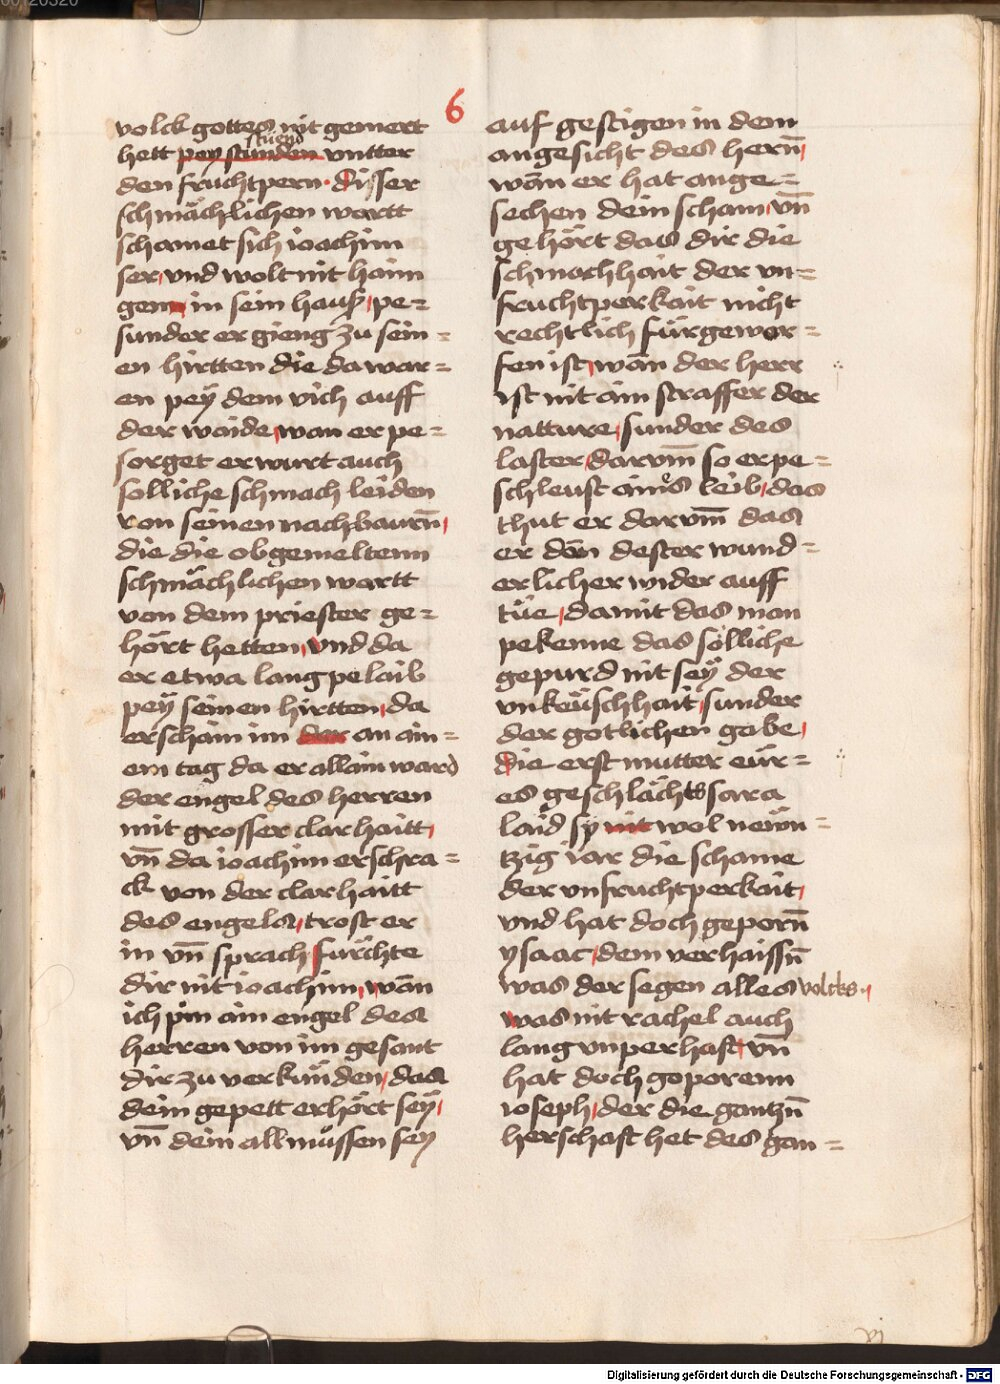 6
volck gottes nit gemert
stuend
hett pey stunden vntter
den fruchtpern. disser
schmächlichen wortt
schamet sich ioachim
ser, vnd wolt nit haim
genn, in sein hauß, pe=
sunder er gieng zu sein=
en hirtten die da war=
en peÿ dem vich auff
der waide, wan er pe=
sorget er wurt auch
solliche schmach leiden
von seinen nachbaurn̄,
die die obgemeltenn
schmächlichen wortt
von dem priester ge=
hört hetten, vnd da
er etwa lang pelaib
peÿ seinen hirtten, da
erschain im der an ain=
em tag da er allain ward
der engel des herren
mit grosser clarhaitt,
vn̄ da ioachim erschra=
ck von der clarhaitt
des engels, trost er
in vn̄ sprach, fürchte
dir nit ioachim, wān
ich pin ain engel des
herren von im gesant
dir zu verkünden, das
dein gepett erhört seÿ,
vn̄ dein allmüssen sey
auf gestigen in dem
angesicht des hern̄,
wān er hat ange=
sechen dein scham, vn̄
gehört das dir die
schmachhait der vn=
fruchtperkait nicht
rechtlich fürgewor=
fen ist, wān der herr
ist nit ain straffer der
natture, sunder des
laster, darvm̄ so er pe=
schleust ains leib, das
thut er darvm̄ das
er dān dester wund=
erlicher wider auff
tüe, damit das man
pekenne das sölliche
gepurd nit seÿ der
vnkeüschhait, sunder
der gotlichen gabe,
die erst mutter eür=
es geschlächts sara
laid sy nit wol neün=
tzig iar die schame
der vnfruchtperkait,
vnd hat doch geporn̄
ysaac, dem verhaissn̄
was der segen alles volcks.,
was nit rachel auch
lang vnperhaft, vn̄
hat doch goporenn
ioseph, der die gantzn̄
herschaft het des gan=
vj
Digitalisierung gefördert durch die Deutsche Forschungsgemeinschaft - DFG